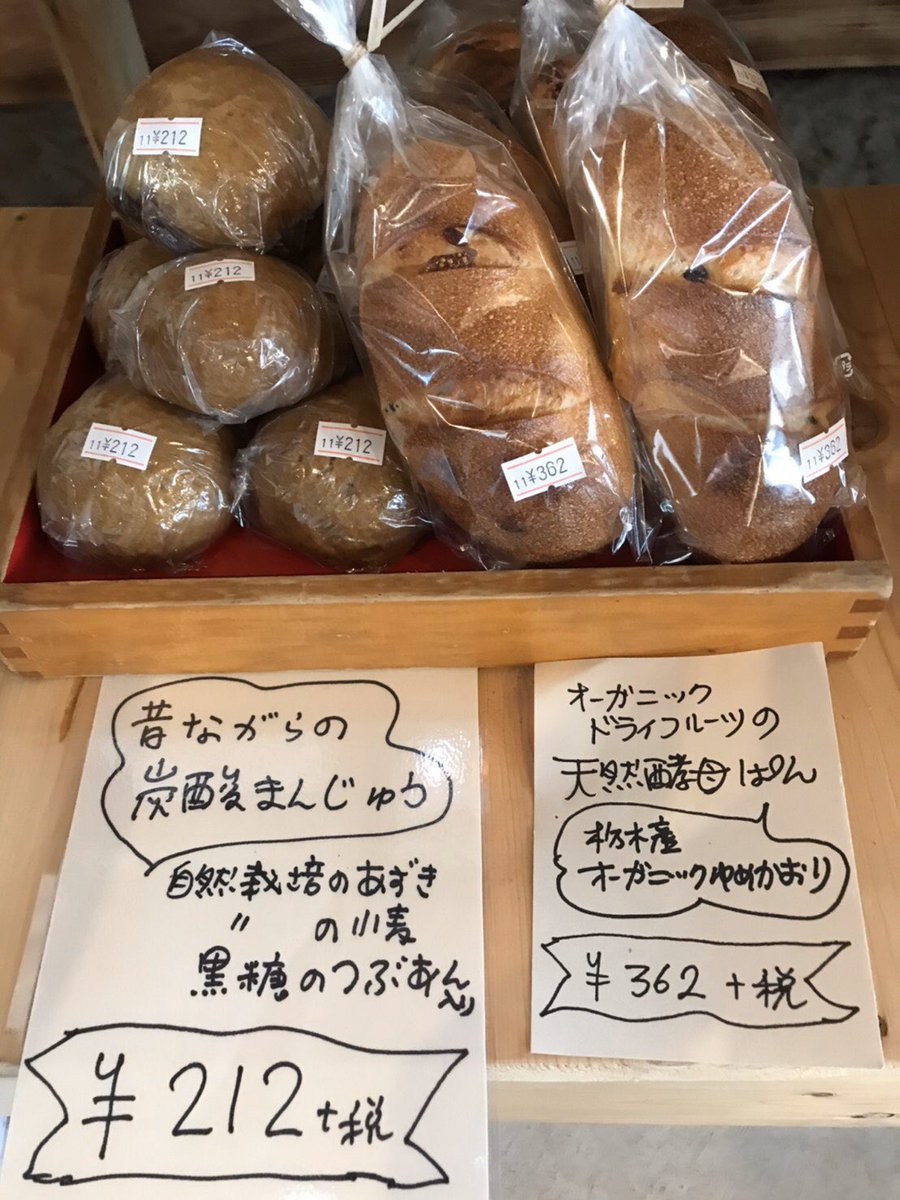 11¥212
11¥212
11¥212
11¥212
11¥362
11¥362
昔ながらの
炭酸まんじゅう
自然栽培のあずき
〃 の小麦
黒糖のつぶあん入り
¥212+税
オーガニック
ドライフルーツの
天然酵母ぱん
栃木産
オーガニックゆめかおり
¥362+税